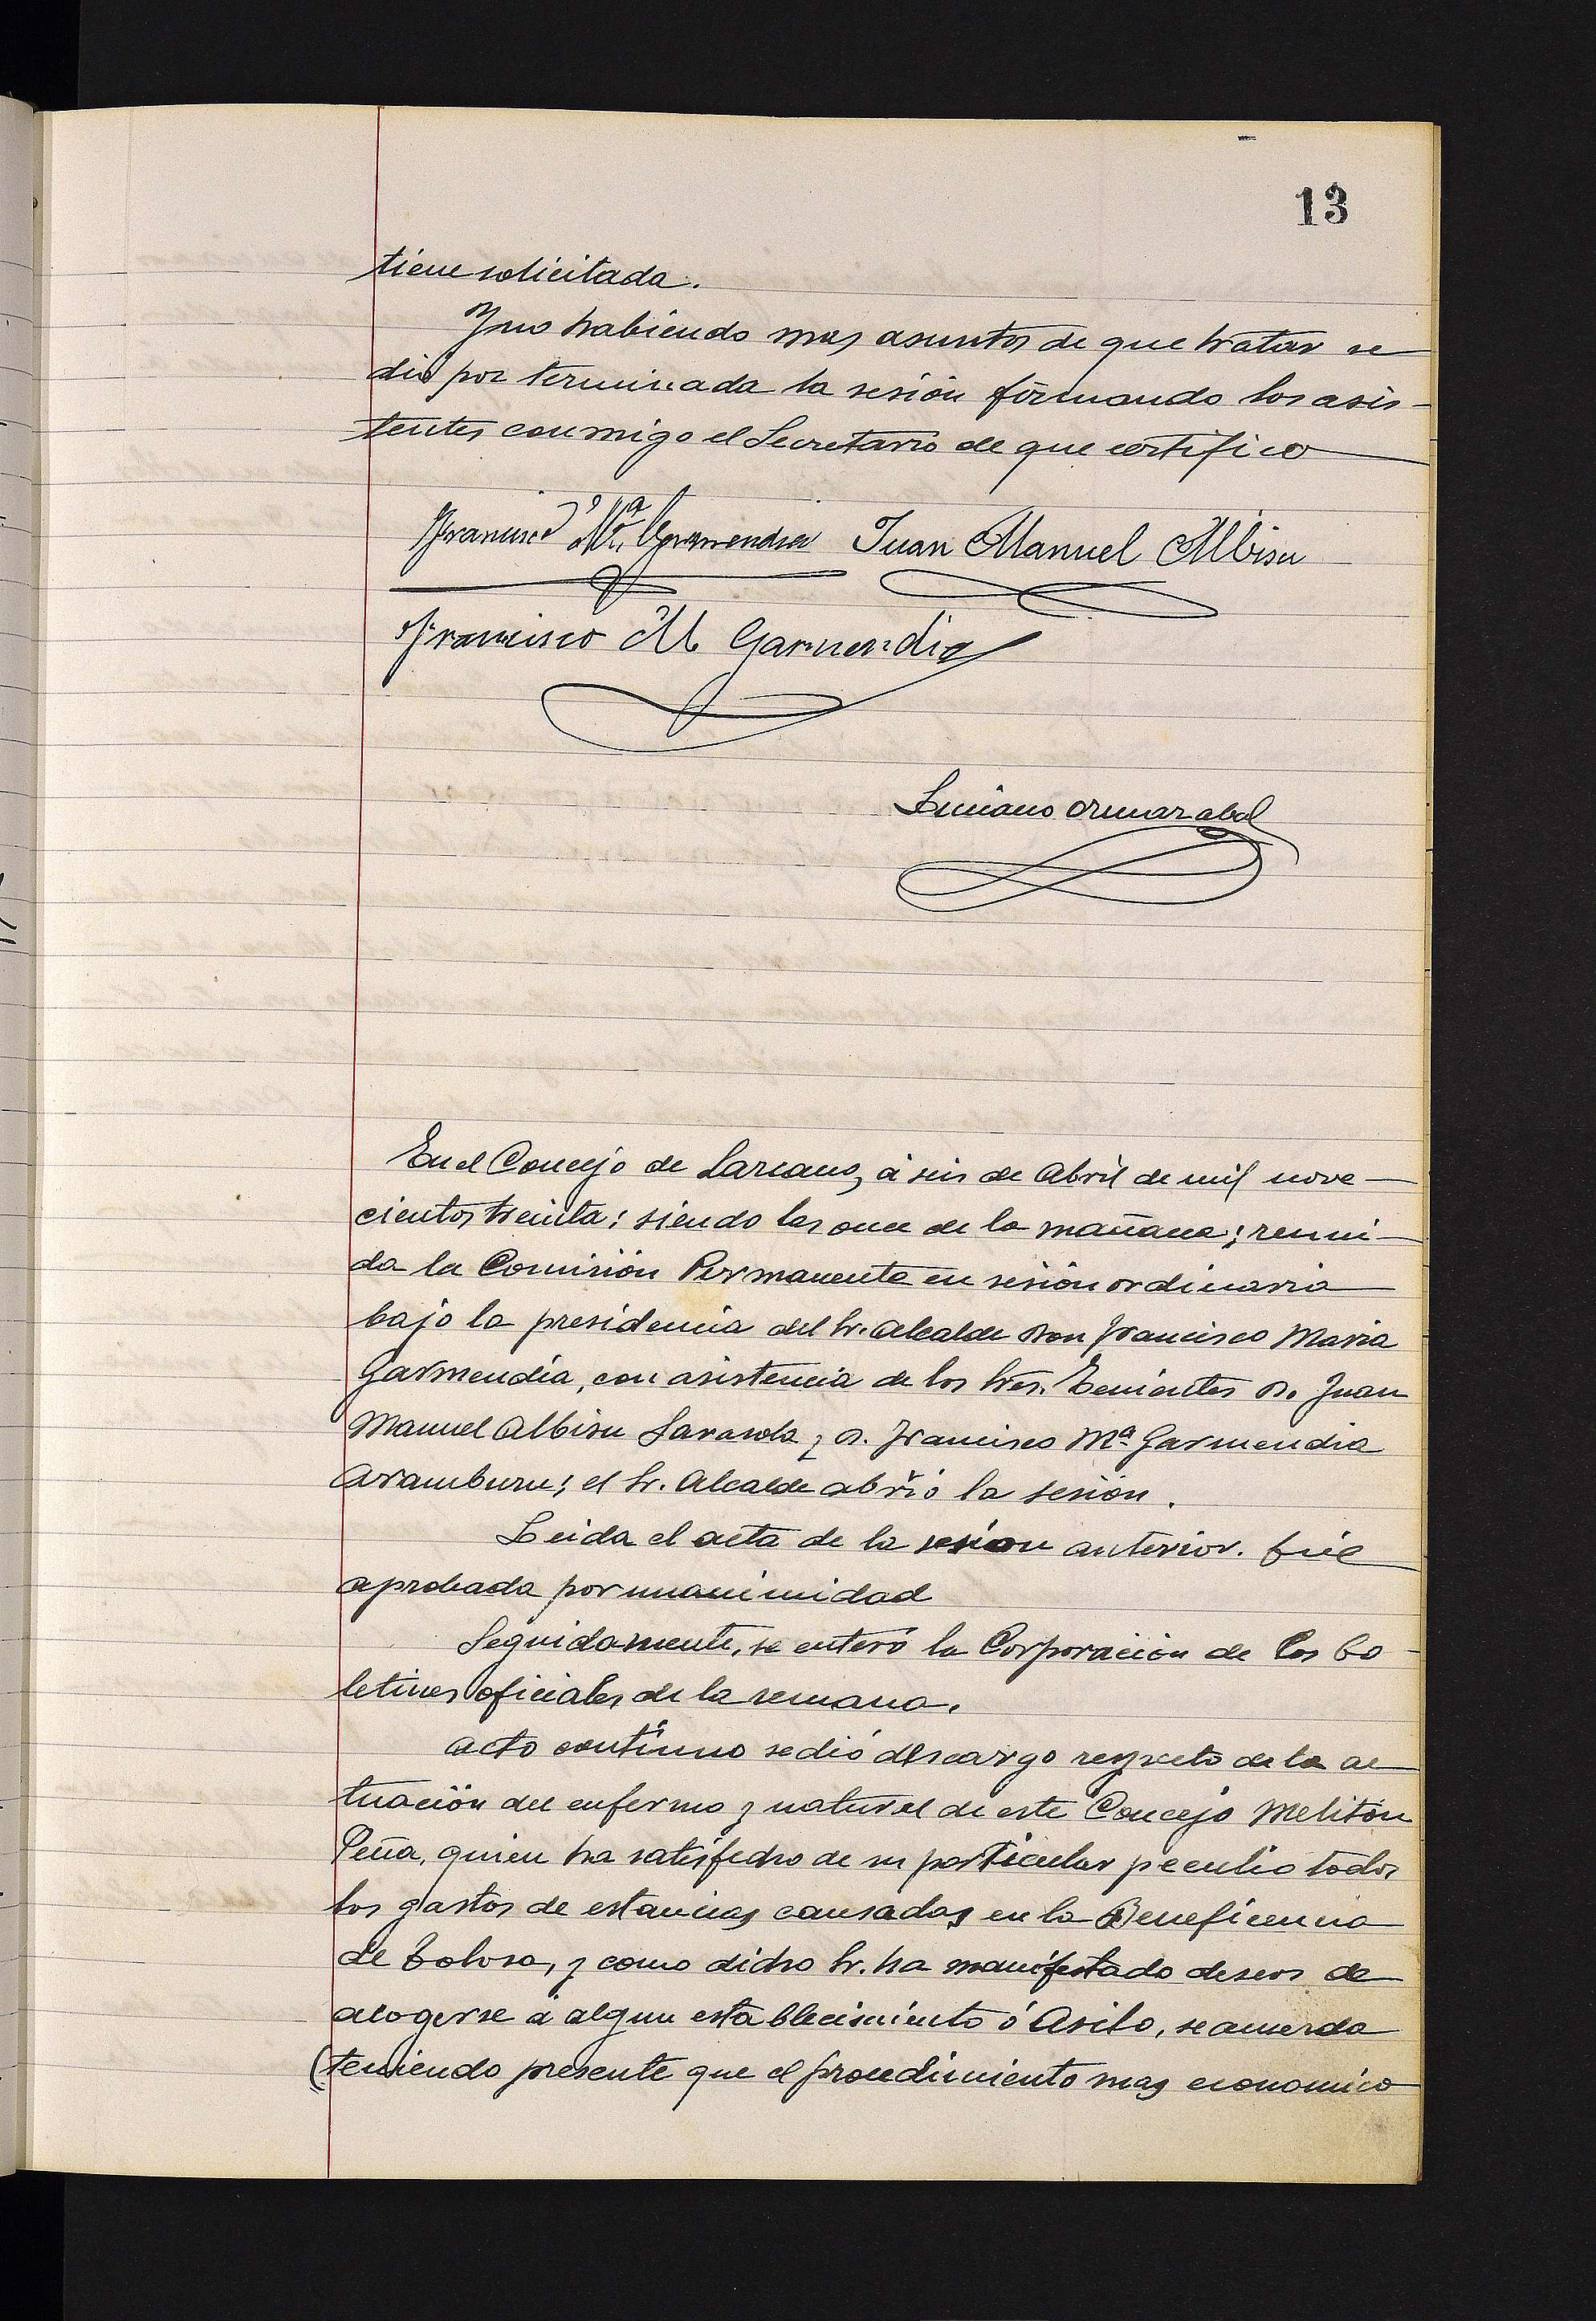 13
tiene solicitada.
Y no habiendo mas asuntos de que tratar se
dió por terminada la sesión firmando los asis-
tentes conmigo el Secretario de que certifico
Francisco Mª Garmendia Juan Manuel Albisu
Francisco M Garmendia
Luciano Ormazabal
En el Concejo de Lazcano, á seis de Abril de mil nove-
cientos treinta; siendo las once de la mañana; reuni-
da la Comisión Permanente en sesión ordinaria
bajo la presidencia del Sr. Alcalde Don Francisco Maria
Garmendia, con asistencia de los Sres. Tenientes D. Juan
Manuel Albisu Sarasola y D. Francisco Mª Garmendia
Aramburu; el Sr. Alcalde abrió la sesión.
Leida el acta de la sesion anterior. fué
aprobada por unanimidad
Seguidamente, se enteró la Corporación de los bo-
letines oficiales de la semana.
Acto contínuo se dió descargo respecto de la ac
tuación del enfermo y natural de este Concejo Melitón
Peña, quien ha satisfecho de su particular peculio todos
los gastos de estancias causadas en la Beneficencia
de Tolosa, y como dicho Sr. ha manifestado deseos de
acogerse á algun establecimiento ó Asilo, se acuerda
(teniendo presente que el procedimiento mas economico